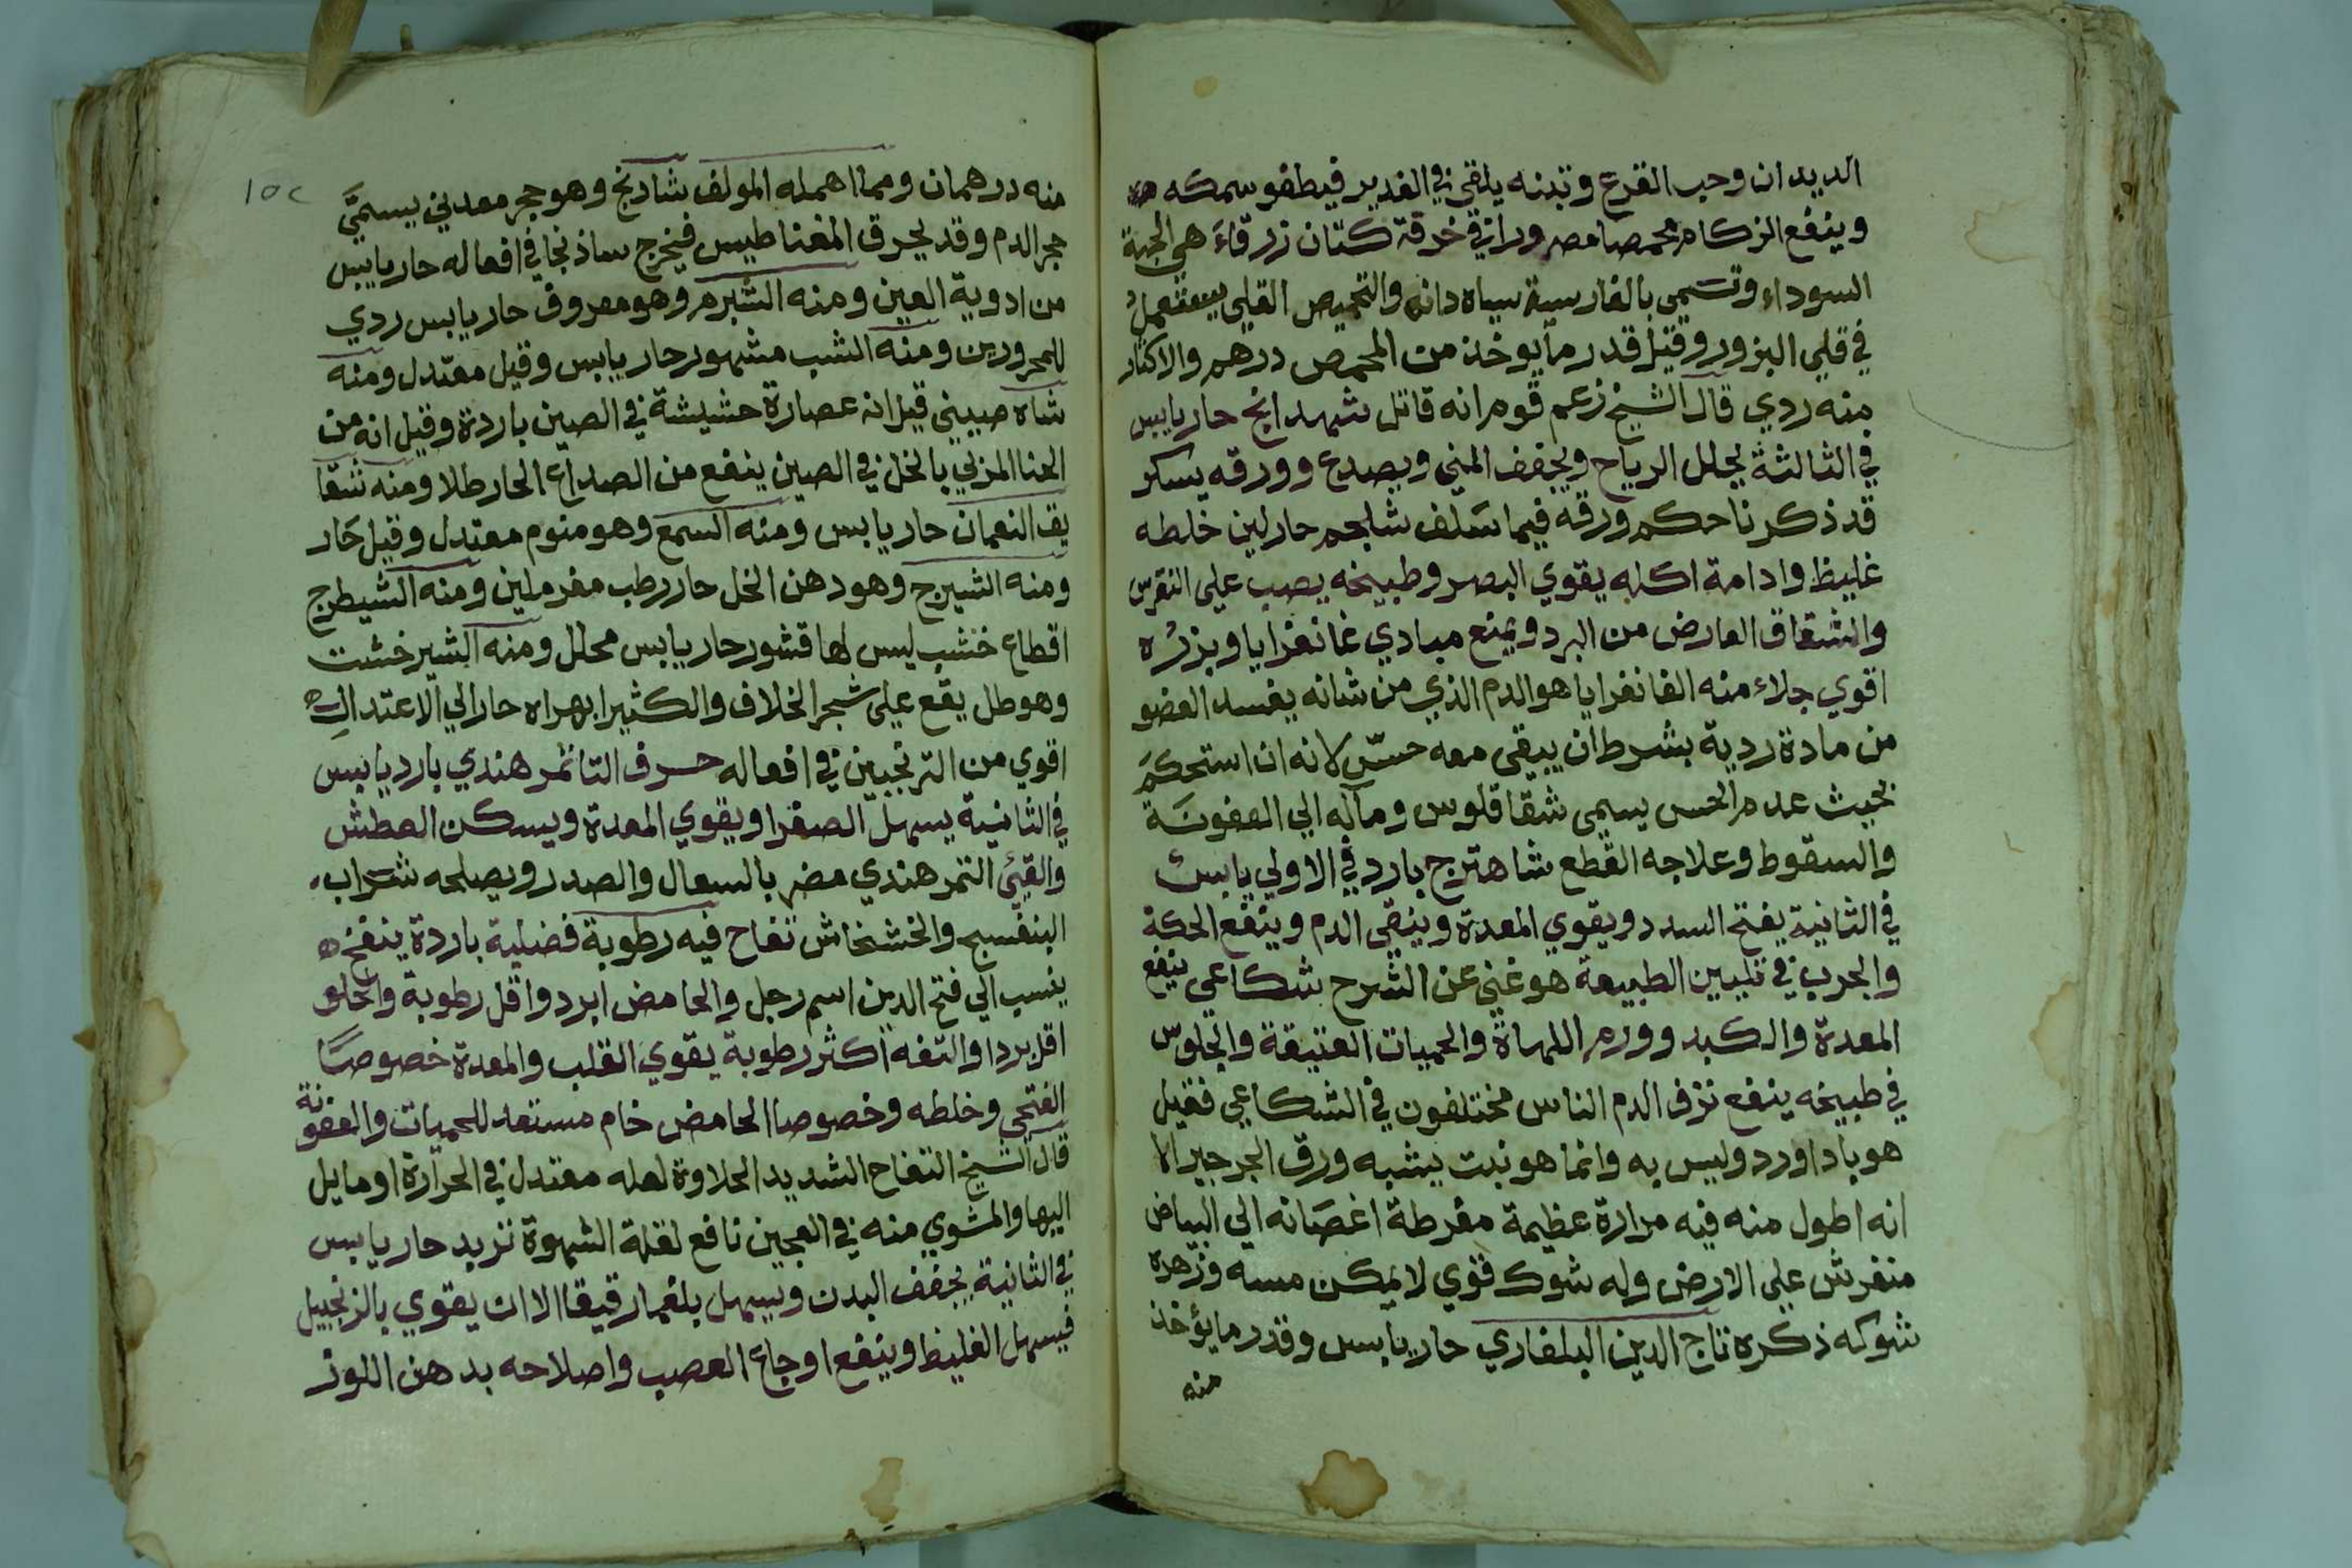 الديدان وحب القرع وتبنه يلقى في الغدير فيطفو سمكه
وينفع الزكام محمصا مصرورا في خرقة كتان زرقاء هي الحبة
السوداء وتسمى بالفارسية سياه دانه والتحميص القلي يستعمل
في قلي البزور وقيل قدر ما يوخذ من المحمص درهم والاكثار
منه ردي قال الشيخ زعم قوم انه قاتل شهدانج حار يابس
في الثالثة يحلل الرياح ويجفف المني ويصدع وورقه يسكر
قد ذكرنا حكم ورقه فيما سلف شلجم حار لين خلطه
غليظ وادامة اكله يقوي البصر وطبيخه يصب على النقرس
والشقاق العارض من البرد ويمنع مبادي غانغرايا وبزره
اقوي جلاء منه الغانغرايا هو الدم الذي من شانه يفسد العضو
من مادة ردية بشرط ان يبقى معه حس لانه ان استحكم
بحيث عدم الحس يسمى شقاقلوس ومآله الي العفونة
والسقوط وعلاجه القطع شاهترج بارد في الاولي يابس
في الثانية يفتح السدد ويقوي المعدة وينقي الدم وينفع الحكة
والجرب في تليين الطبيعة هو غني عن الشرح شكاعي ينفع
المعدة والكبد وورم اللهاة والحميات العتيقة والجلوس
في طبيخه ينفع نزف الدم الناس مختلفون في الشكاعي فقيل
هو باداورد وليس به وانما هو نبت يشبه ورق الجرجير الا
انه اطول منه فيه مرارة عظيمة مفرطة اغصانه الي البياض
منفرش على الارض وله شوك قوي لا يمكن مسه وزهره
شوكه ذكره تاج الدين البلغاري حار يابس وقدر ما يؤخذ
منه
١٥٢
منه درهمان ومما اهمله المولف شادنج وهو حجر معدني يسمى
حجر الدم وقد يحرق المغناطيس فيخرج ساذنجا في افعاله حار يابس
من ادوية العين ومنه الشبرم وهو معروف حار يابس ردي
للمحرورين ومنه الشب مشهور حار يابس وقيل معتدل ومنه
شاه صيني قيل انه عصارة حشيشة في الصين باردة وقيل انه من
الحنا المربي بالخل في الصين ينفع من الصداع الحار طلا ومنه شقا
يق النعمان حار يابس ومنه السمع وهو منوم معتدل وقيل حار
ومنه الشيرج وهو دهن الخل حار رطب مغر ملين ومنه الشيطرج
اقطاع خشب ليس لها قشور حار يابس محلل ومنه الشيرخشت
وهو طل يقع على شجر الخلاف والكثيرا بهراه حار الي الاعتدال
اقوي من الترنجبين في افعاله حرف التا تمر هندي بارد يابس
في الثانية يسهل الصفرا ويقوي المعدة ويسكن العطش
والقيئ التمر هندي مضر بالسعال والصدر ويصلحه شراب
البنفسج والخشخاش تفاح فيه رطوبة فضلية باردة ينفخ
ينسب الي فتح الدين اسم رجل والحامض ابرد واقل رطوبة والحلو
اقل بردا والتفه اكثر رطوبة يقوي القلب والمعدة خصوصا
الفتحي وخلطه وخصوصا الحامض خام مستعد للحميات والعفونة
قال الشيخ التفاح الشديد الحلاوة لعله معتدل في الحرارة او مايل
اليها والمشوي منه في العجين نافع لقلة الشهوة تربد حار يابس
في الثانية يجفف البدن ويسهل بلغما رقيقا الا ان يقوي بالزنجبيل
فيسهل الغليظ وينفع اوجاع العصب واصلاحه بدهن اللوز